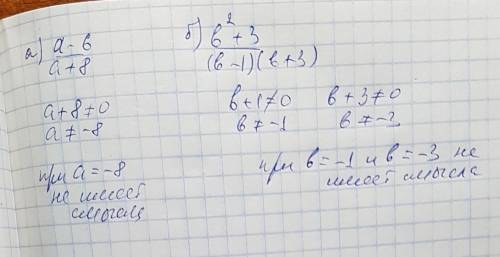 а) a-b/a+8
a+8≠0
a≠-8
при a=-8
не имеет
смысла
б) b²+3/(b-1)(b+3)
b+1≠0 b+3≠0
b≠-1 b≠-3
при b=-1 и b=-3 не
имеет смысла